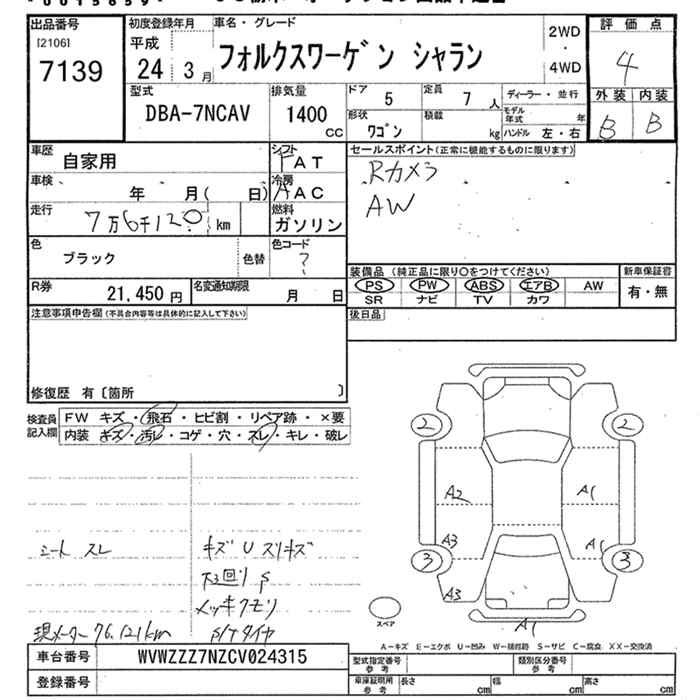 出品番号
[2106]
7139
初度登録年月
平成
24年3月
車名・グレード
フォルクスワーゲン シャラン
2WD
・
4WD
評価点
4
外装 内装
B B
型式
DBA-7NCAV
排気量
1400
cc
ドア 5
定員 7 人
形状 ワゴン
積載 kg
ディーラー・並行
モデル年式 年
ハンドル 左・右
車歴 自家用
シフト FAT
車検 年 月( 日)
冷房 AAC
走行 7万6千120 km
燃料 ガソリン
色 ブラック 色替
色コード ?
R券 21,450円
名変通知期限 月 日
セールスポイント(正常に機能するものに限ります)
Rカメラ
AW
装備品 (純正品に限り○をつけてください)
PS PW ABS エアB AW
SR ナビ TV カワ
新車保証書
有・無
後日品
注意事項申告欄(不具合内容等は具体的に記入して下さい)
修復歴 有〔箇所 〕
検査員記入欄
FW キズ・飛石・ヒビ割・リペア跡・×要
内装 キズ・汚レ・コゲ・穴・スレ・キレ・破レ
シート スレ
キズ U スリキズ
下回り P
メッキクモリ
P/Tタイヤ
現メーター 76,121km
2 2
A2 A1
A3 A1
3 3
A3
A1
スペア
A-キズ E-エクボ U-凹み W-補修跡 S-サビ C-腐食 XX-交換済
車台番号 WVWZZZ7NZCV024315
登録番号
型式指定番号 参考
類別区分番号 参考
車庫証明用 参考
長さ cm 幅 cm 高さ cm